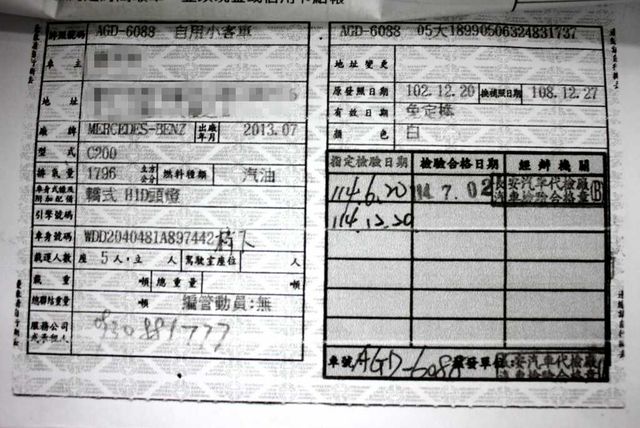 牌照號碼 AGD-6088 自用小客車
車主
地址
廠牌 MERCEDES-BENZ 出廠年月 2013.07
型式 C200
排氣量 1796 立方公分 燃料種類 汽油
車身式樣及附加配備 轎式 HID頭燈
引擎號碼
車身號碼 WDD2040481A897442
載運人數 座 5人,立 人 駕駛室座位 人
載重 噸 總重量 噸
總聯結重量 噸 編管動員:無
AGD-6088 05大18990506324831737
地址變更
原發照日期 102.12.20 換補照日期 108.12.27
有效日期 免定換
顏色 白
指定檢驗日期 檢驗合格日期 經辦機關
114.6.20 114.7.02 長安汽車代檢廠(B)
汽車檢驗合格章
114.12.20
車號 AGD-6088 單發單位 長安汽車代檢廠
汽車檢驗合格章